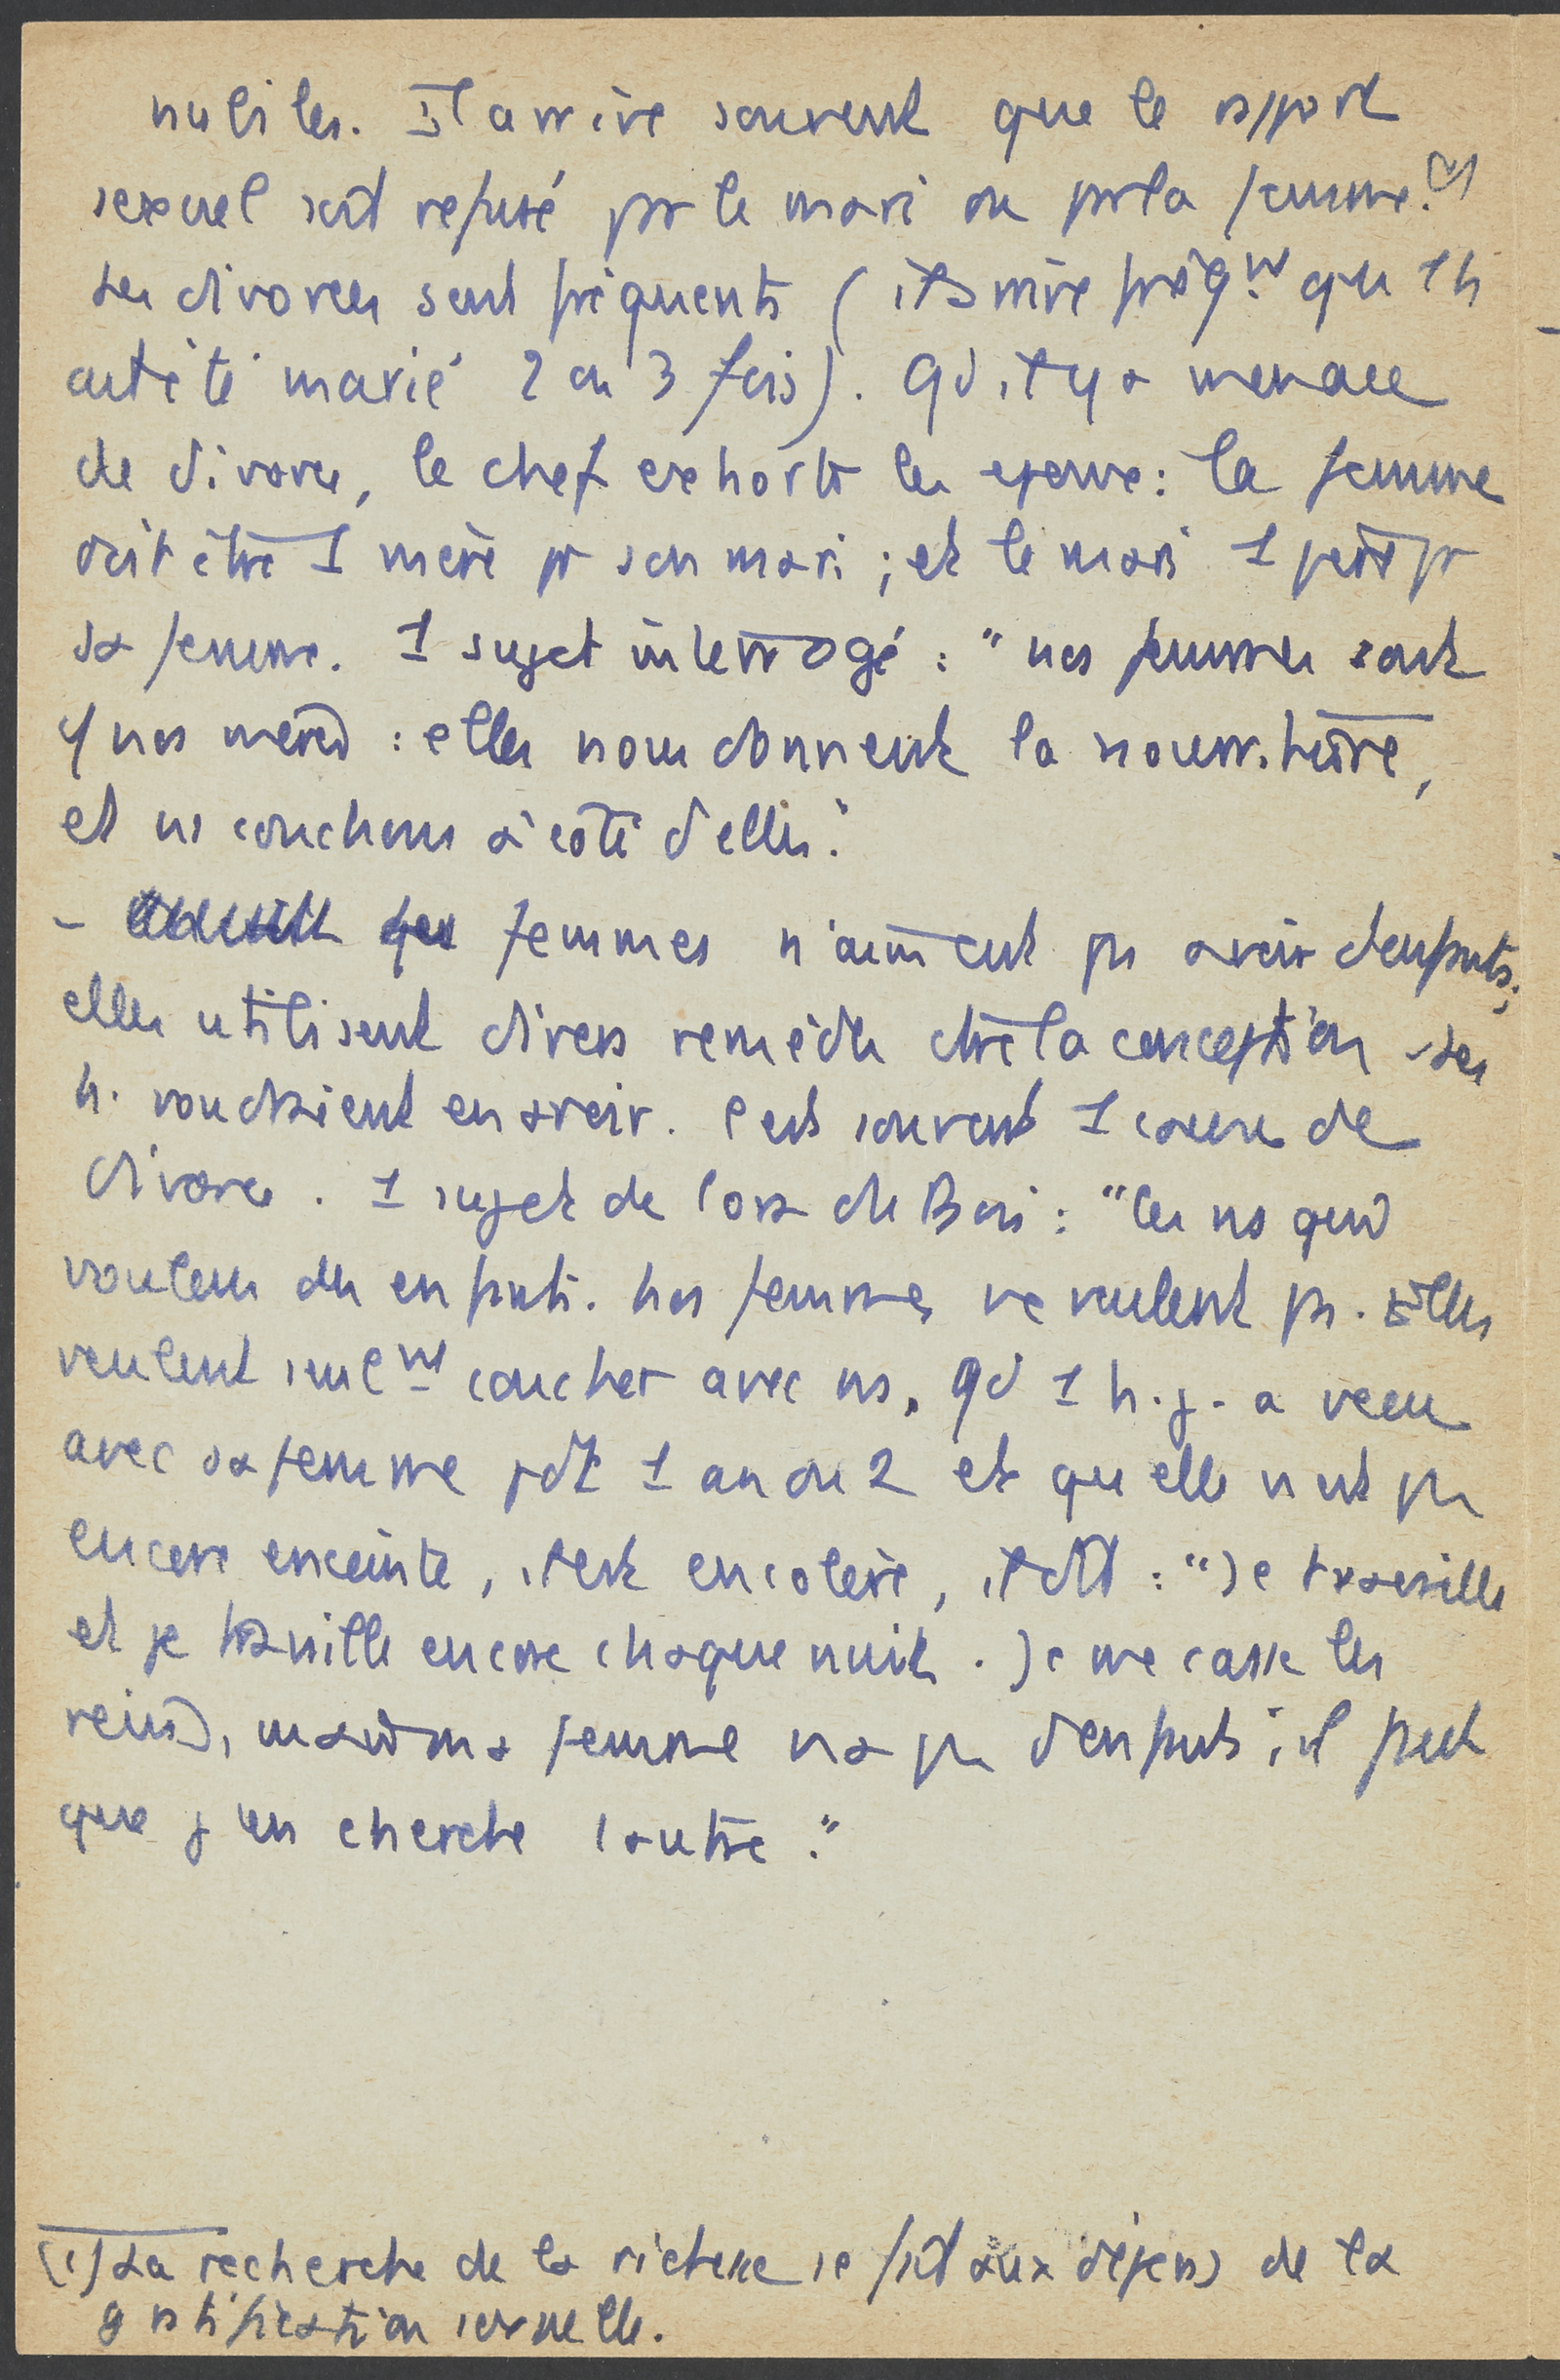 nubiles. Il arrive souvent que le rapport
sexuel soit refusé par le mari ou par la femme. (1)
Les divorces sont fréquents (il arrive fréqmt qu'1 h
ait été marié 2 ou 3 fois). Qd il y a menace
de divorce, le chef exhorte les époux : la femme
doit être 1 mère pr son mari ; et le mari 1 père pr
sa femme. 1 sujet interrogé : "nos femmes sont
nos mères : elles nous donnent la nourriture,
et ns couchons à côté d'elles."
- Les femmes n'aiment pas avoir d'enfants ;
elles utilisent divers remèdes ctre la conception - Les
h. voudraient en avoir. C'est souvent 1 cause de
divorce. 1 sujet de : "C'est ns qui
voulons des enfants. Nos femmes ne veulent pas. Elles
veulent seulmt coucher avec ns. Qd 1 h. j. a vécu
avec sa femme pdt 1 an ou 2 et qu'elle n'est pas
encore enceinte, il est en colère, il dit : "Je travaille
et je travaille encore chaque nuit. Je me casse les
reins, mais ma femme n'a pas d'enfants ; il faut
que j'en cherche 1 autre."
(1) La recherche de la richesse se fait aux dépens de la
gratification sexuelle.